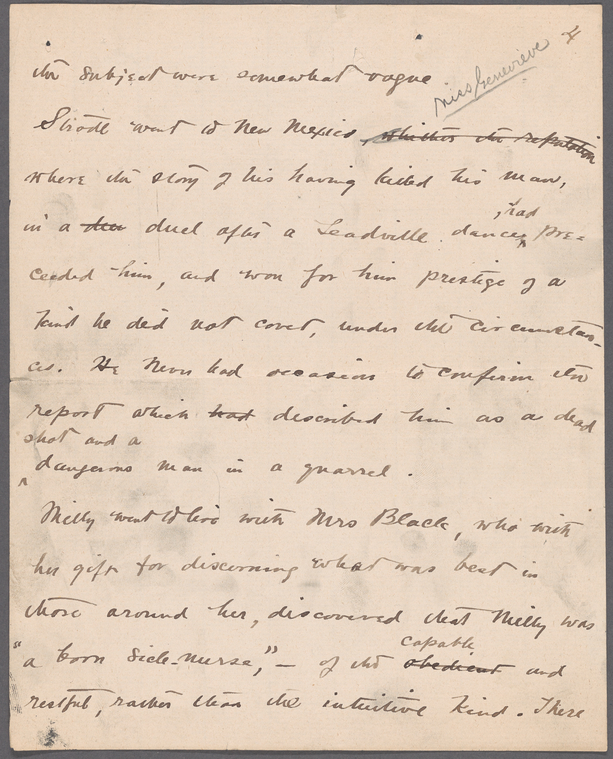 4
Miss Genevieve
the subject were somewhat vague
Strode went to New Mexico, whither the reputation
where the story of his having killed his man,
in a due duel after a Leadville dance, had pre-
ceeded him, and won for him prestige of a
kind he did not covet, under the circumstan-
ces. He never had occasion to confirm the
report which had described him as a dead
shot and a
dangerous man in a quarrel.
Milly went to live with Mrs Black, who with
her gift for discerning what was best in
those around her, discovered that Milly was
capable
"a born sick-nurse," — of the obedient and
restful, rather than the intuitive kind. There